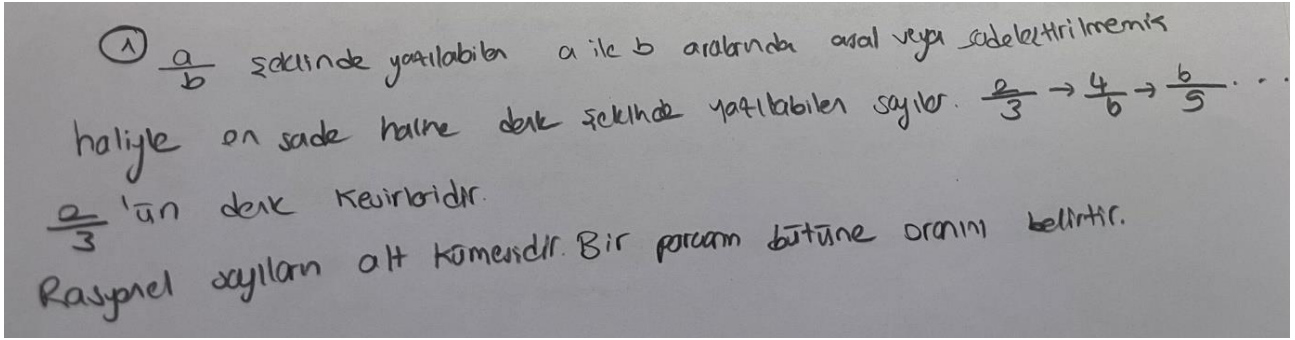 ① a/b şeklinde yazılabilen a ile b aralarında asal veya sadeleştirilmemiş
haliyle en sade haline denk şekilnde yazılabilen sayılar. 2/3 → 4/6 → 6/9 ...
2/3 'ün denk kesirleridir.
Rasyonel sayıların alt kümesidir. Bir parçanın bütüne oranını belirtir.